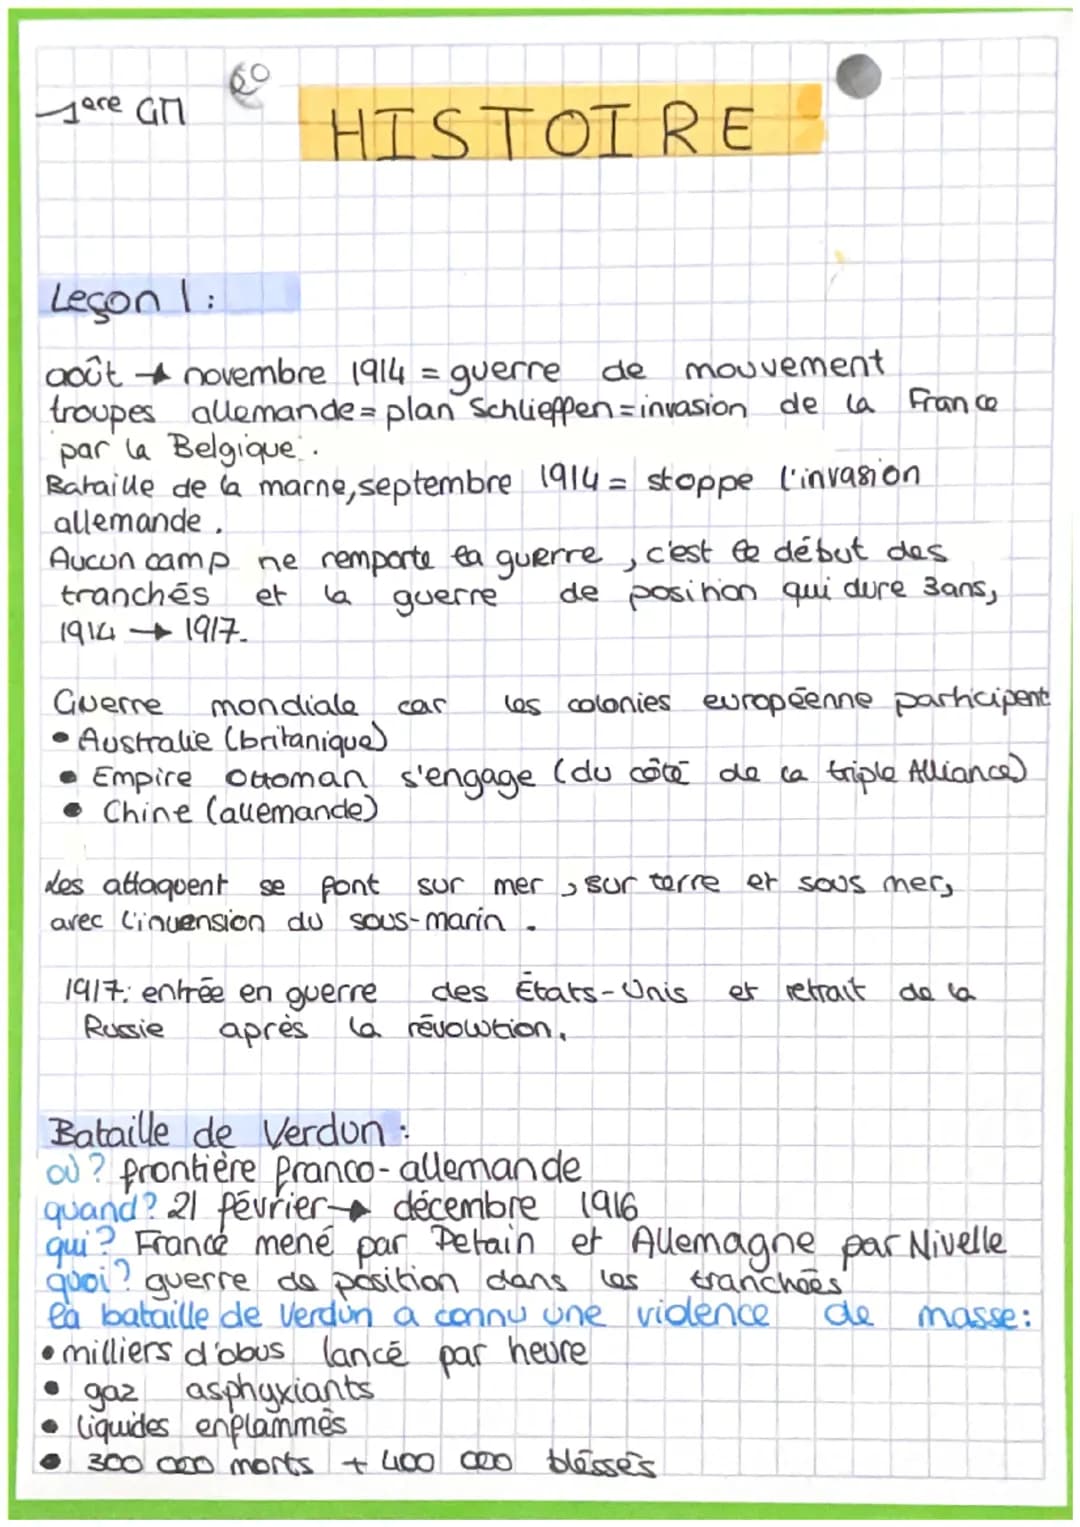 1ere GT
HISTOIRE
Leçon 1 :
août → novembre 1914 = guerre de mouvement
troupes allemande = plan Schlieffen = invasion de la France
par la Belgique .
Bataille de la marne, septembre 1914 = stoppe l'invasion
allemande .
Aucun camp ne remporte la guerre , c'est le début des
tranchés et la guerre de position qui dure 3ans,
1914 → 1917.
Guerre mondiale car les colonies européenne participent
• Australie (britanique)
• Empire Ottoman s'engage (du côté de la triple Alliance)
• Chine (allemande)
Les attaquent se font sur mer , sur terre et sous mer,
avec l'invension du sous-marin .
1917: entrée en guerre des États-Unis et retrait de la
Russie après la révolution.
Bataille de Verdun :
où ? frontière franco-allemande
quand? 21 février → décembre 1916
qui ? France mené par Petain et Allemagne par Nivelle
quoi? guerre de position dans les tranchées
la bataille de Verdun a connu une violence de masse:
• milliers d'obus lancé par heure
• gaz asphyxiants
• liquides enflammés
• 300 000 morts + 400 000 bléssés